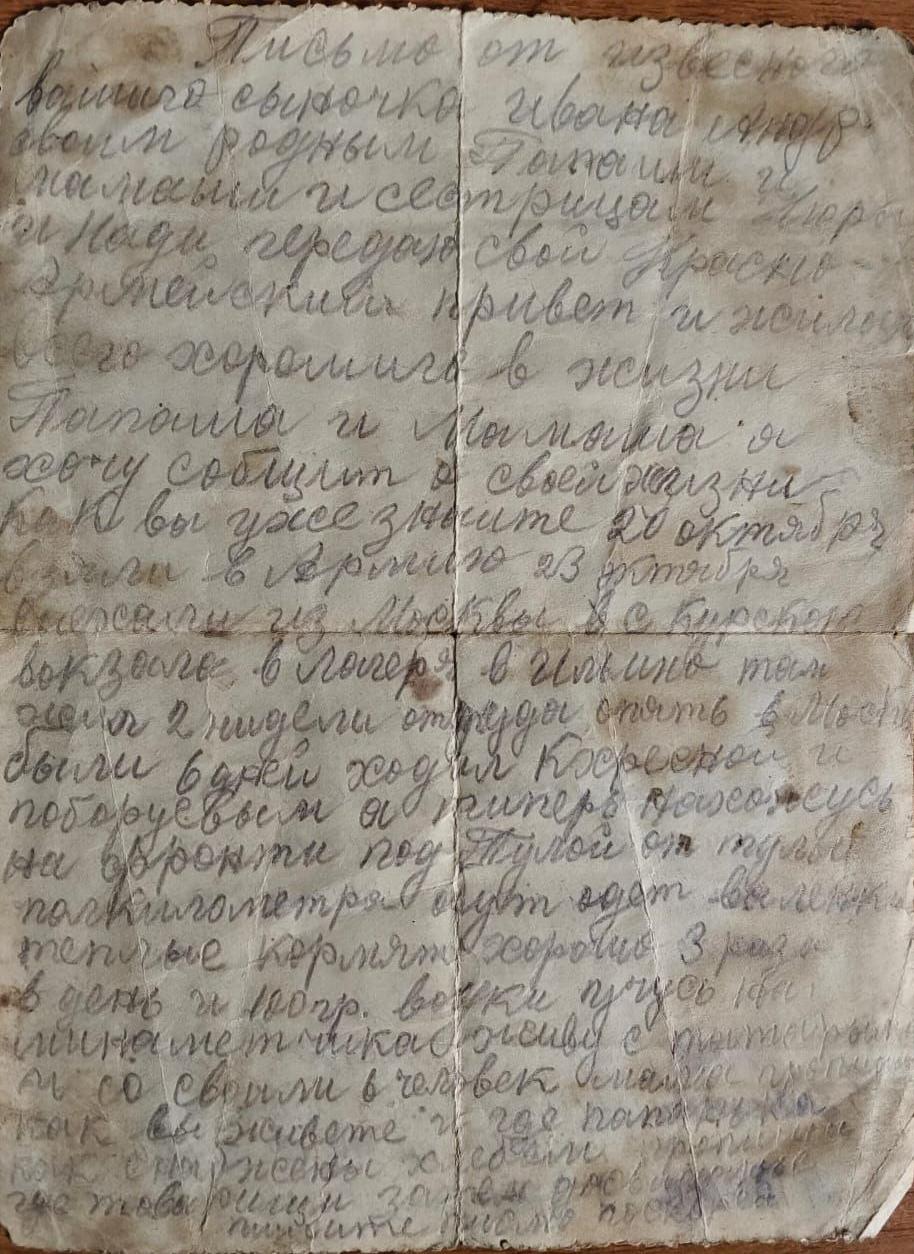 Письмо от извесного
вашиго сыночка Ивана Андр.
своим родным Папаши и
мамаши и сестрицам Нюры
и Нади передаю свой Красно-
Армейский привет и жилаю
всего хорошиго в жизни
Папаша и Мамаша я
хочу собщит о своей жизни
как вы уже знаите 20 октября
взяли в Армию 23 октября
выехали из Москвы с Курского
вокзала в лагеря в Ильино там
жил 2 нидели оттуда опять в Моск
были 6 дней ходил Кхресной и
а типерь нахожусь
на фронти под Тулой от тулы
полкилометра обут одет валенки
теплые кормят хорошо 3 раза
в день и 100 гр. водки учусь на
минаметчика живу с
и со своими 6 человек мама
как вы живете и где папанька
как хлебом
где товарищи
пишите письмо